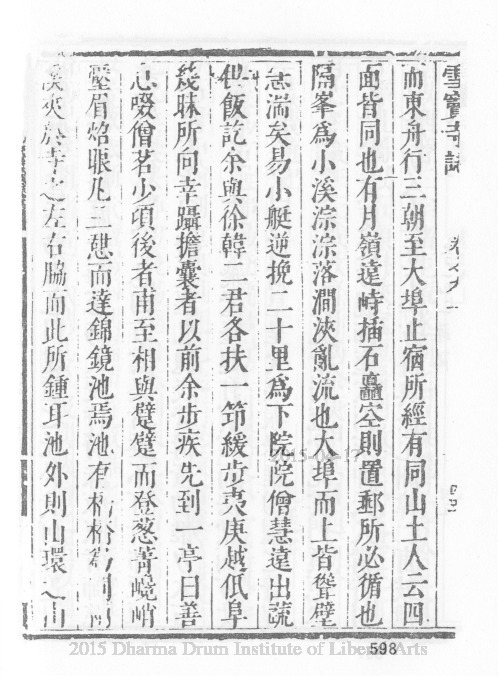 雪竇寺誌 卷之九
而東舟行三朝至大埠止宿所經有同山土人云四
面皆同也有月嶺遠峙插石矗空則置郵所必循也
隔峯為小溪淙淙落澗浹亂流也大埠而上皆聳壁
湍矣易小艇逆挽二十里為下院院僧慧遠出蔬
飯訖余與徐韓二君各扶一筇緩步夷庚越低阜
幾昧所向幸躡擔囊者以前余步疾先到一亭曰善
心啜僧茗少頃後者甫至相與躄躄而登葱蒨巉峭
壓眉焰眼凡三憇而達錦鏡池焉池有橋橋
溪夾於寺之左右脇而此所鍾耳池外則山環之山
598
2015 Dharma Drum Institute of Liberal Arts